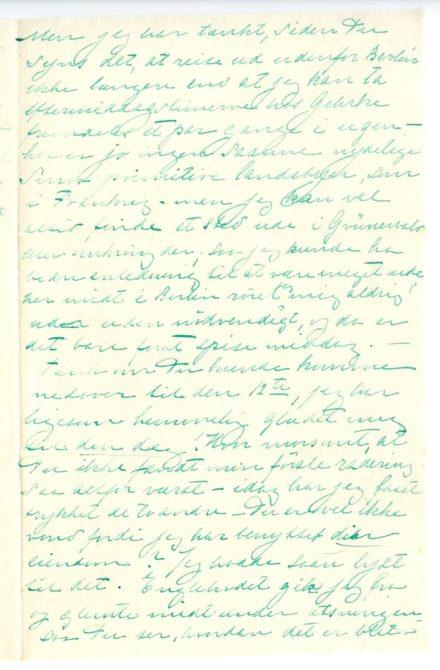 Men jeg har tænkt, siden Du
synes det, at reise ud udenfor Berlin
ikke længer end at jeg kan ta
eftermiddagstimerne hos Gehrke
fremdeles et par gange i ugen –
her er jo ingen saanne nydelige
smaa primitive landsbyer, som
i Frankrig – men jeg kan vel
altid finde et sted ude i Grünewald
eller omkring der, saa jeg kunde ha
bedre anledning til at være meget ude
her midt i Berlin rører mig aldrig
uden nødvendigt, og da er
det bare først spise middag. –
Tænk om Du kunde komme
nedover til den 12te, jeg har
ligesom hemmelig glædet mig
til den dag! Hvor morsomt, at
Du ikke fandt min første radering
saa altfor værst – idag har jeg faaet
trykket de to andre – Du er vel ikke
vond fordi jeg har benyttet din
eiendom? Jeg havde saan lyst
til det. gik jeg fra
og glemte midt under ætsningen
som Du ser, hvordan det er blet –